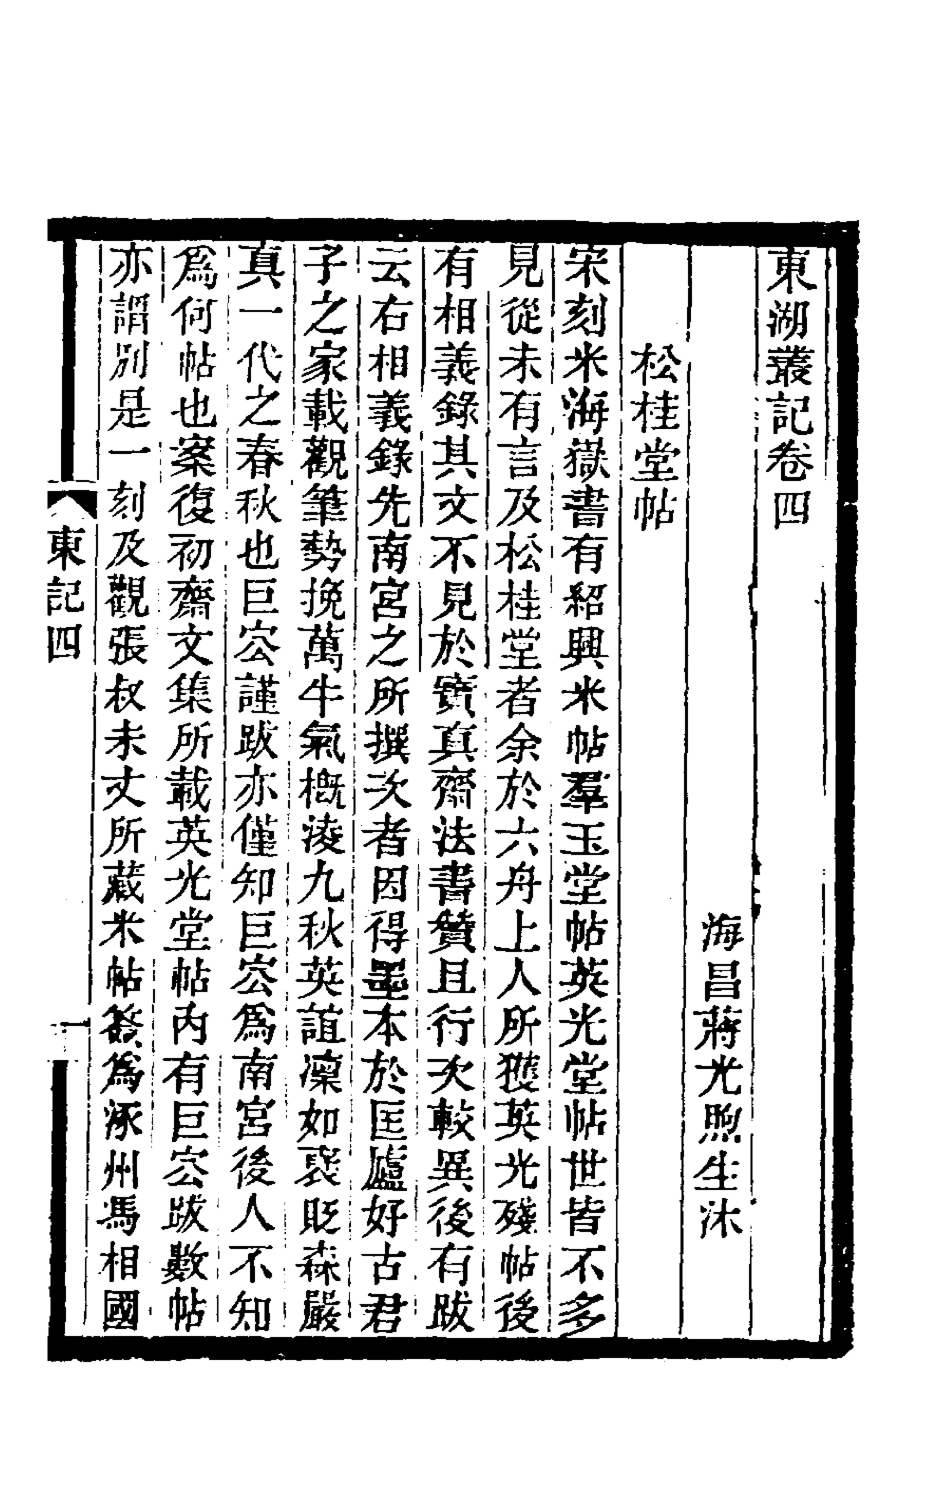 東湖叢記卷四
海昌蔣光煦生沐
松桂堂帖
宋刻米海嶽書有紹興米帖羣玉堂帖英光堂帖世皆不多
見從未有言及松桂堂者余於六舟上人所獲英光殘帖後
有相義錄其文不見於寶真齋法書贊且行次較異後有跋
云右相義錄先南宮之所撰次者因得墨本於匡廬好古君
子之家載觀筆勢挽萬牛氣概淩九秋英誼凜如褒貶森嚴
真一代之春秋也巨㳂謹跋亦僅知巨㳂爲南宮後人不知
爲何帖也案復初齋文集所載英光堂帖內有巨㳂跋數帖
亦謂別是一刻及觀張叔未丈所藏米帖簽爲涿州馮相國
東記四
一